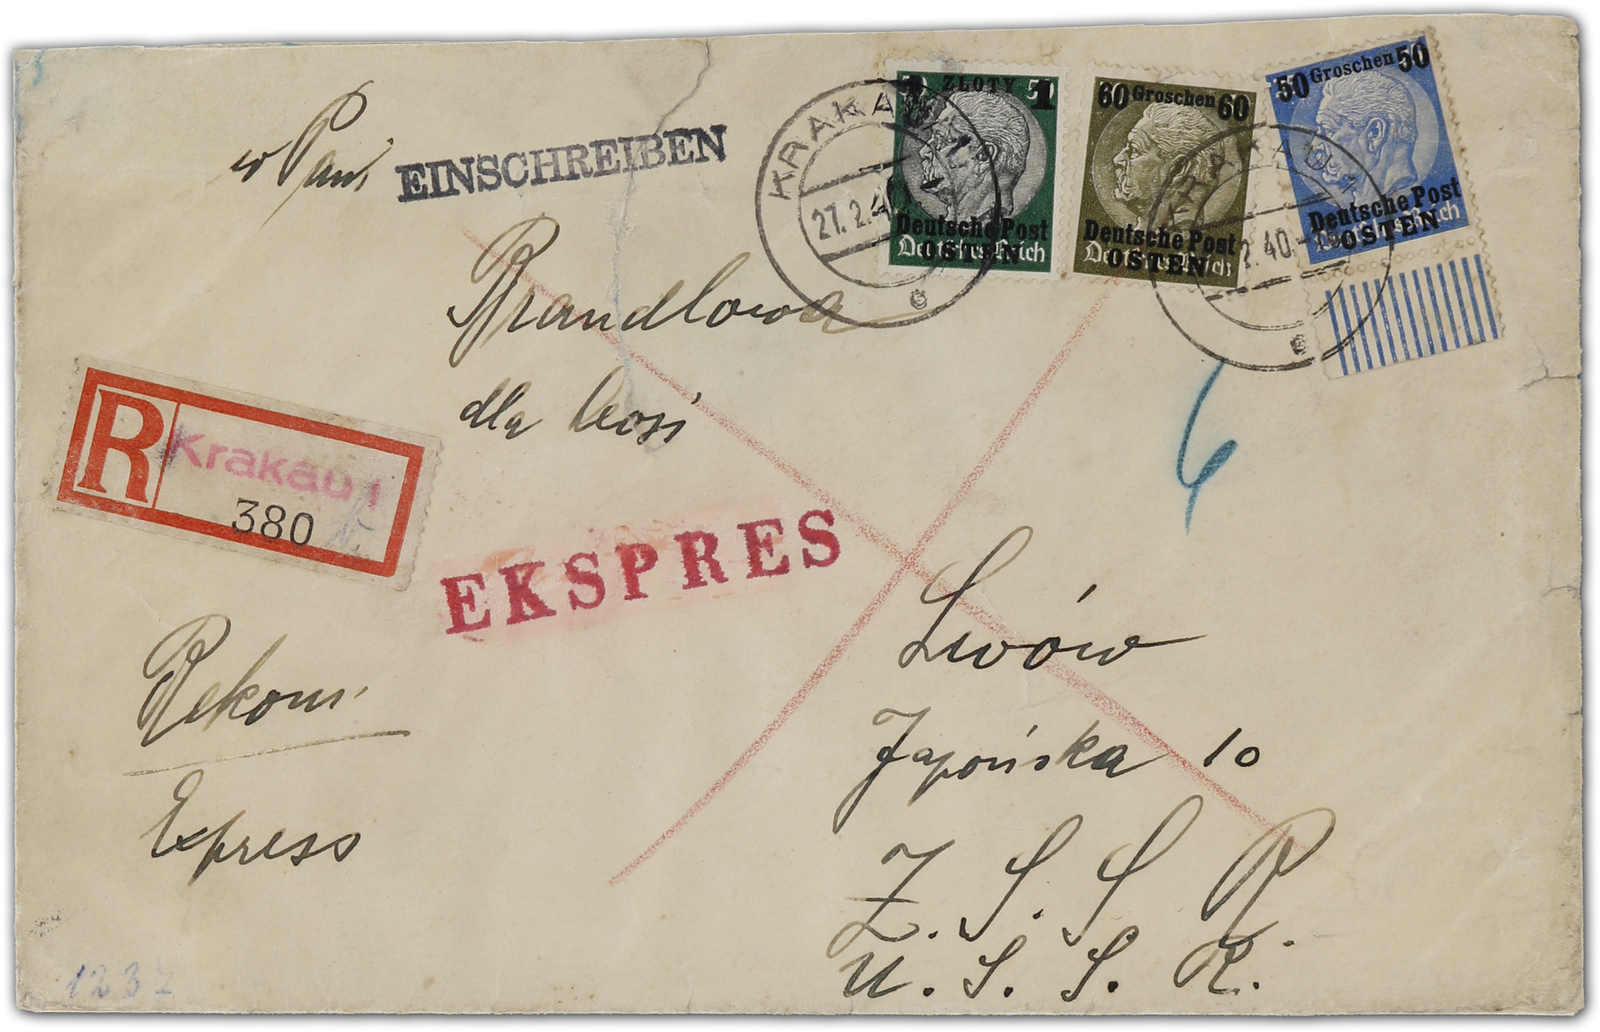 EINSCHREIBEN
1 ZŁOTY 1
Deutsche Post
OSTEN
Deutsches Reich
60 Groschen 60
Deutsche Post
OSTEN
Deutsches Reich
50 Groschen 50
Deutsche Post
OSTEN
Deutsches Reich
KRAKAU 1
27.2.40
e
KRAKAU 1
2.40
e
Brandlowa
dla
6
R Krakau 1
380
EKSPRES
Rekom.
Express
Lwów
Japońska 10
Z.S.S.R.
U.S.S.R.
123